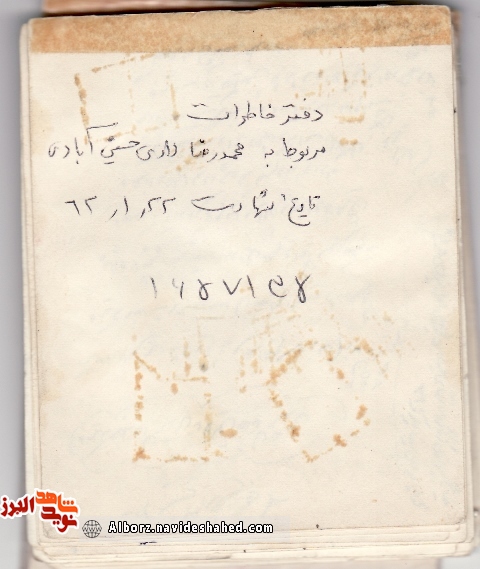 دفتر خاطرات
مربوط به محمدرضا دادی حسن آبادی
تاریخ شهادت ۶۲٫۱٫۲۲
۱۶۴۷۱۳۴
شاهد
نوید
البرز
Alborz.navideshahed.com